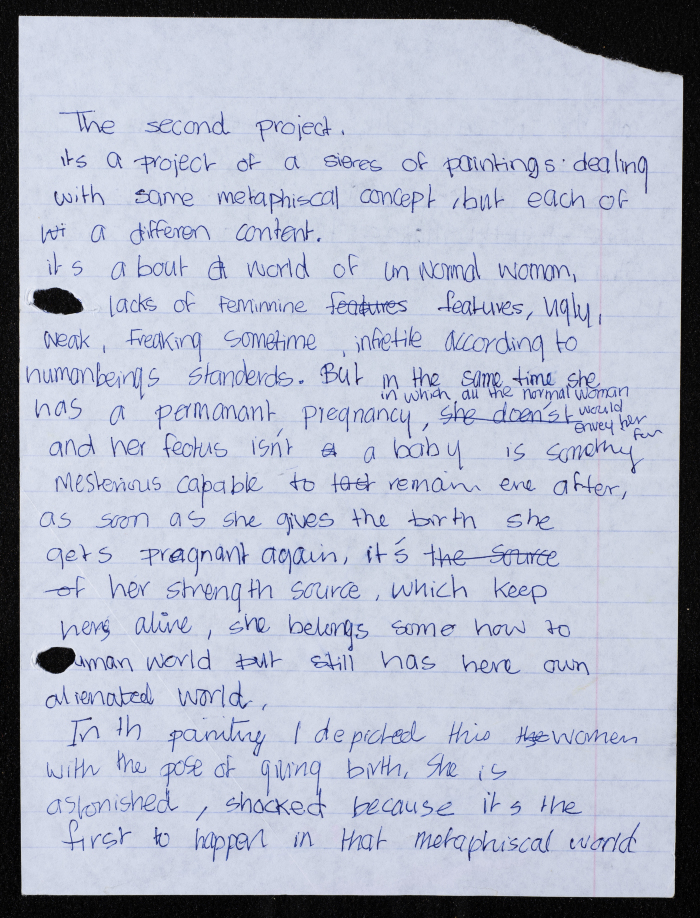 The second project.
its a project of a sieres of paintings dealing
with same metaphiscal concept, but each of
a differen content.
it's about a world of un normal woman,
lacks of feminine features features, ugly,
weak, freaking sometime, infretile according to
humanbeings standerds. But in the same time she
in which all the normal woman
has a permanant pregnancy, she doen'st would
envey her
and her feotus isn't a a baby is
for
mesterious capable to remain ene after,
as soon as she gives the birth she
gets pragnant again, it's the source
of her strength source, which keep
here alive, she belongs some how to
uman world but still has here own
alienated world,
In th painting I depicted this women
with the pose of giving birth, she is
astonished, shocked because it's the
first to happen in that metaphiscal world